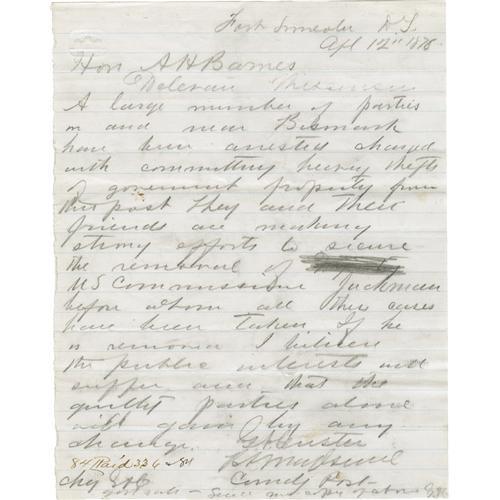 Fort Lincoln D.T.
Apl 12" 1876
Hon A H Barnes
Delevan Wisconsin
A large number of parties
in and near Bismark
have been arrested charged
with committing heavy thefts
of goverment property from
this post They and their
friends are making
strong efforts to secure
the removal of
US Commissioner Jackman
before whom all these cases
have been taken If he
is removed I believe
the public interests will
suffer and that the
guilty parties alone
will gain by any
change. G A Custer
Lt
84 Paid 336
Chg Comdg Post